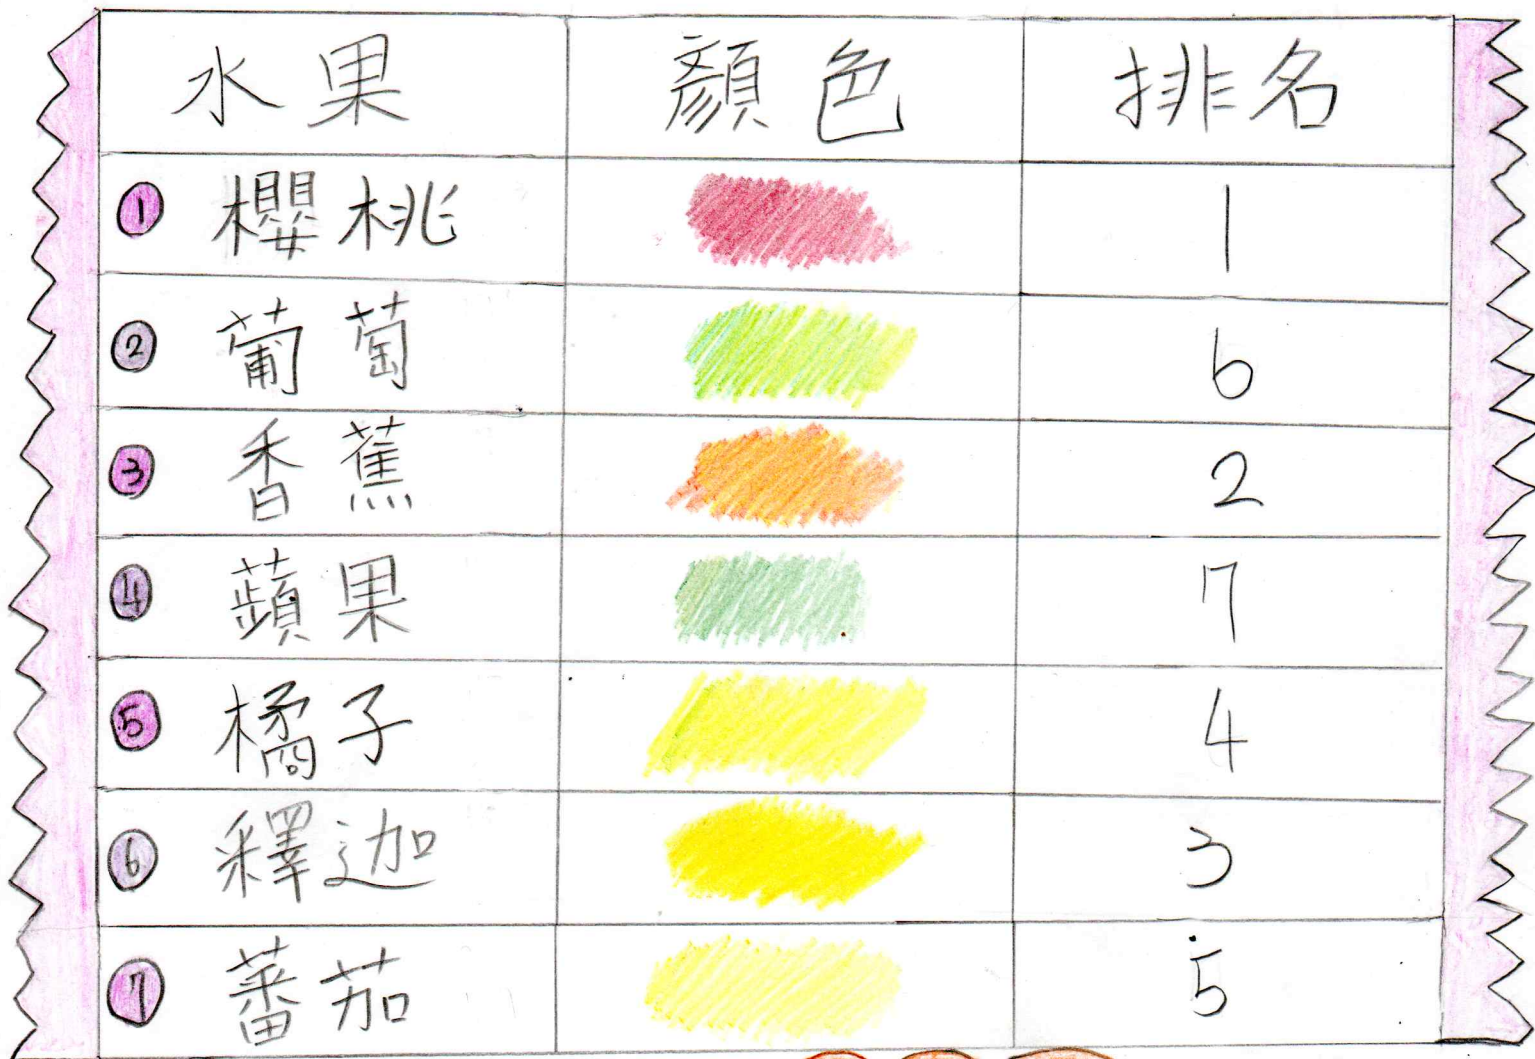 水果 顏色 排名
1 櫻桃 1
2 葡萄 6
3 香蕉 2
4 蘋果 7
5 橘子 4
6 釋迦 3
7 蕃茄 5